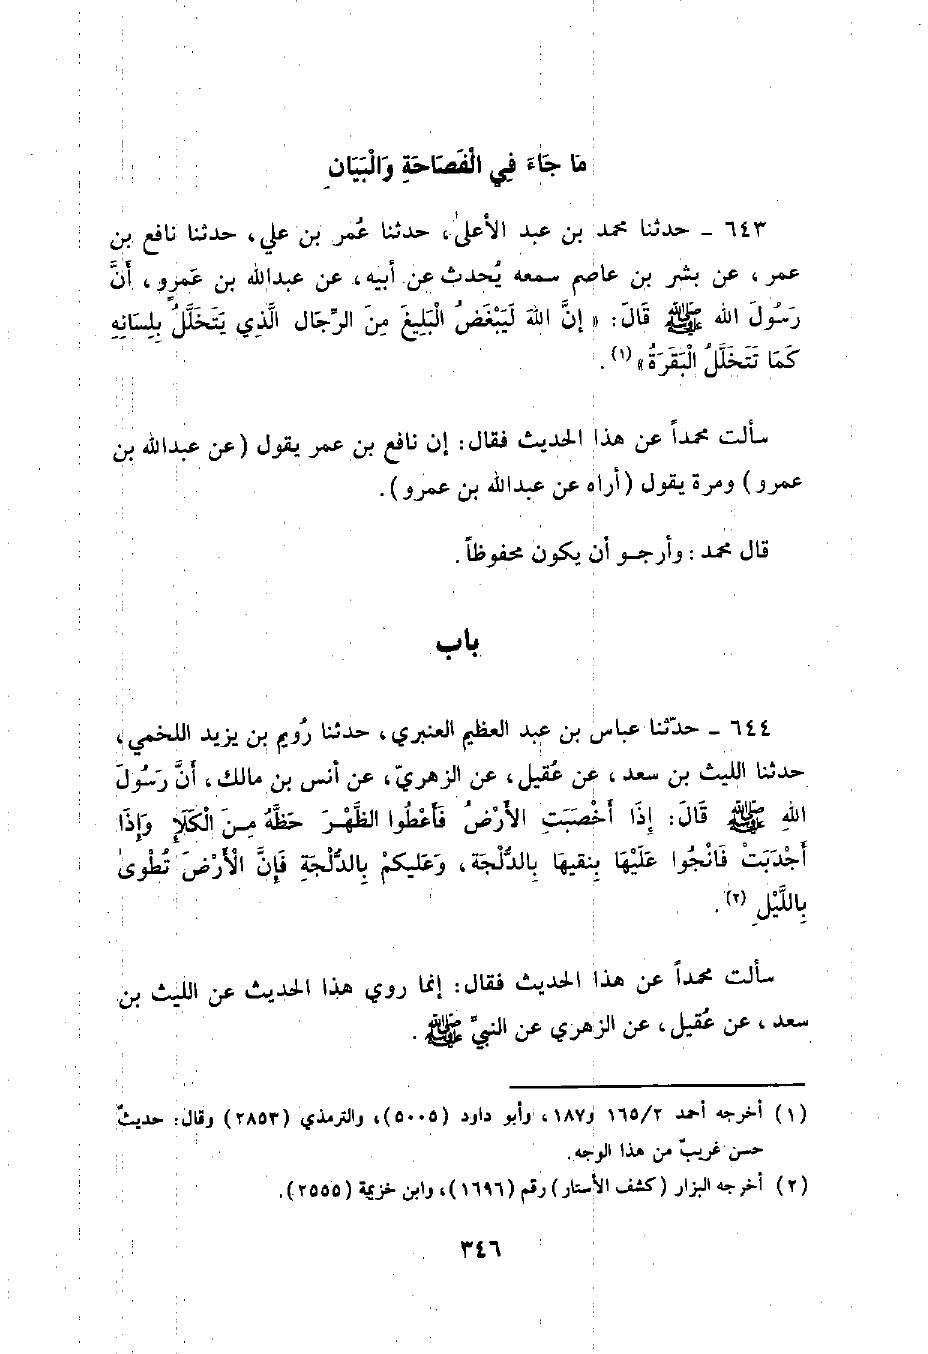 مَا جَاءَ فِي الْفَصَاحَةِ وَالْبَيَانِ
٦٤٣ ـ حدثنا محمد بن عبد الأعلىٰ، حدثنا عُمر بن علي، حدثنا نافع بن
عمر، عن بشر بن عاصم سمعه يُحدث عن أبيه، عن عبدالله بن عَمرٍو، أَنَّ
رَسُولَ الله ﷺ قَالَ: «إنَّ اللهَ لَيَبْغَضُ الْبَلِيغَ مِنَ الرِّجَال الَّذِي يَتَخَلَّلُ بِلِسَانِهِ
كَمَا تَتَخَلَّلُ الْبَقَرَةُ»(١).
سألت محمداً عن هذا الحديث فقال: إن نافع بن عمر يقول (عن عبدالله بن
عمرو) ومرة يقول (أراه عن عبدالله بن عمرو).
قال محمد: وأرجو أن يكون محفوظاً.
باب
٦٤٤ ـ حدّثنا عباس بن عبد العظيم العنبري، حدثنا رُويم بن يزيد اللخمي،
حدثنا الليث بن سعد، عن عُقيل، عن الزهريّ، عن أنس بن مالك، أَنَّ رَسُولَ
اللهِ ﷺ قَالَ: إِذَا أَخْصَبَتِ الأَرْضُ فَأَعْطُوا الظَّهْرَ حَظَّهُ مِنَ الْكَلَإِ وَإِذَا
أَجْدَبَتْ فَانْجُوا عَلَيْهَا بِنقيهَا بِالدُّلْجَة، وَعَليكمْ بِالدُّلْجَةِ فَإِنَّ الْأَرْضَ تُطْوىٰ
بِاللَّيْلِ(٢).
سألت محمداً عن هذا الحديث فقال: إنما روي هذا الحديث عن الليث بن
سعد، عن عُقيل، عن الزهري عن النبيّ ﷺ.
(١) أخرجه أحمد ١٦٥/٢ و١٨٧، وأبو داود (٥٠٠٥)، والترمذي (٢٨٥٣) وقال: حديثٌ
حسن غريبٌ من هذا الوجه.
(٢) أخرجه البزار (كشف الأستار) رقم (١٦٩٦)، وابن خزيمة (٢٥٥٥).
٣٤٦